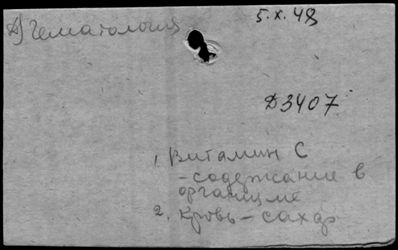 Д) Гематология
5.X.48
Д3407
1. Витамин С
- содержание в
организме
2. Кровь - сахар